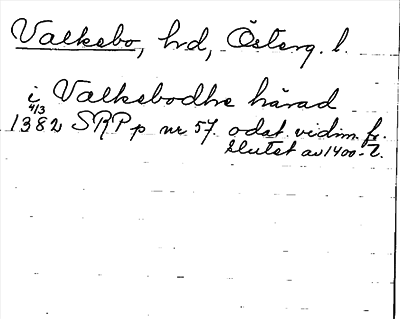 Valkebo, hrd, Österg. l.
i Valkebodhe härad
4/3
1382 SRP p nr 57. odat. vidim. fr.
slutet av 1400-t.